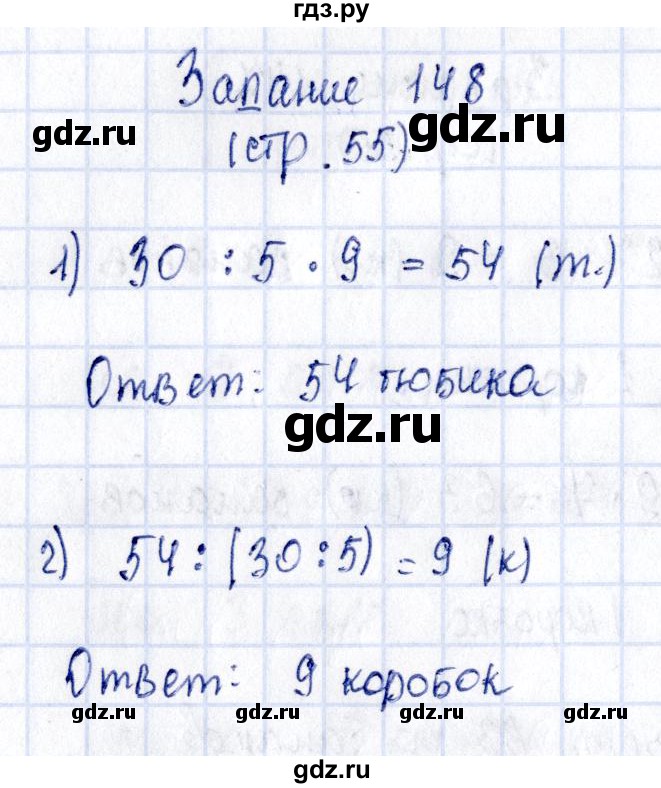 гдз.ру
Задание 148
gdz.ru gdz.ru
(стр. 55)
1) 30 : 5 · 9 = 54 (т.)
gdz.ru gdz.ru
Ответ: 54 тюбика
gdz.ru
2) 54 : (30 : 5) = 9 (к)
gdz.ru gdz.ru
Ответ: 9 коробок
gdz.ru gdz.ru gdz.ru gdz.ru
gdz.ru